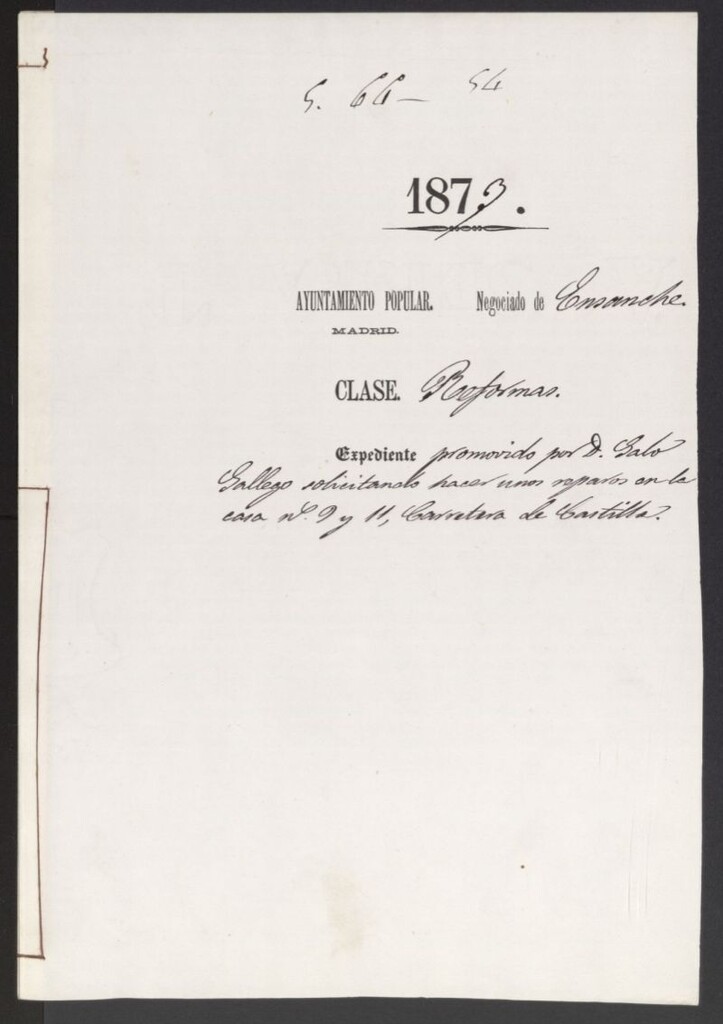 5. 66 - 54
1873.
AYUNTAMIENTO POPULAR. Negociado de Ensanche.
MADRID.
CLASE. Reformas.
Expediente promovido por D. Galo
Gallego solicitando hacer unos reparos en la
casa nº 9 y 11, Carretera de Castilla.